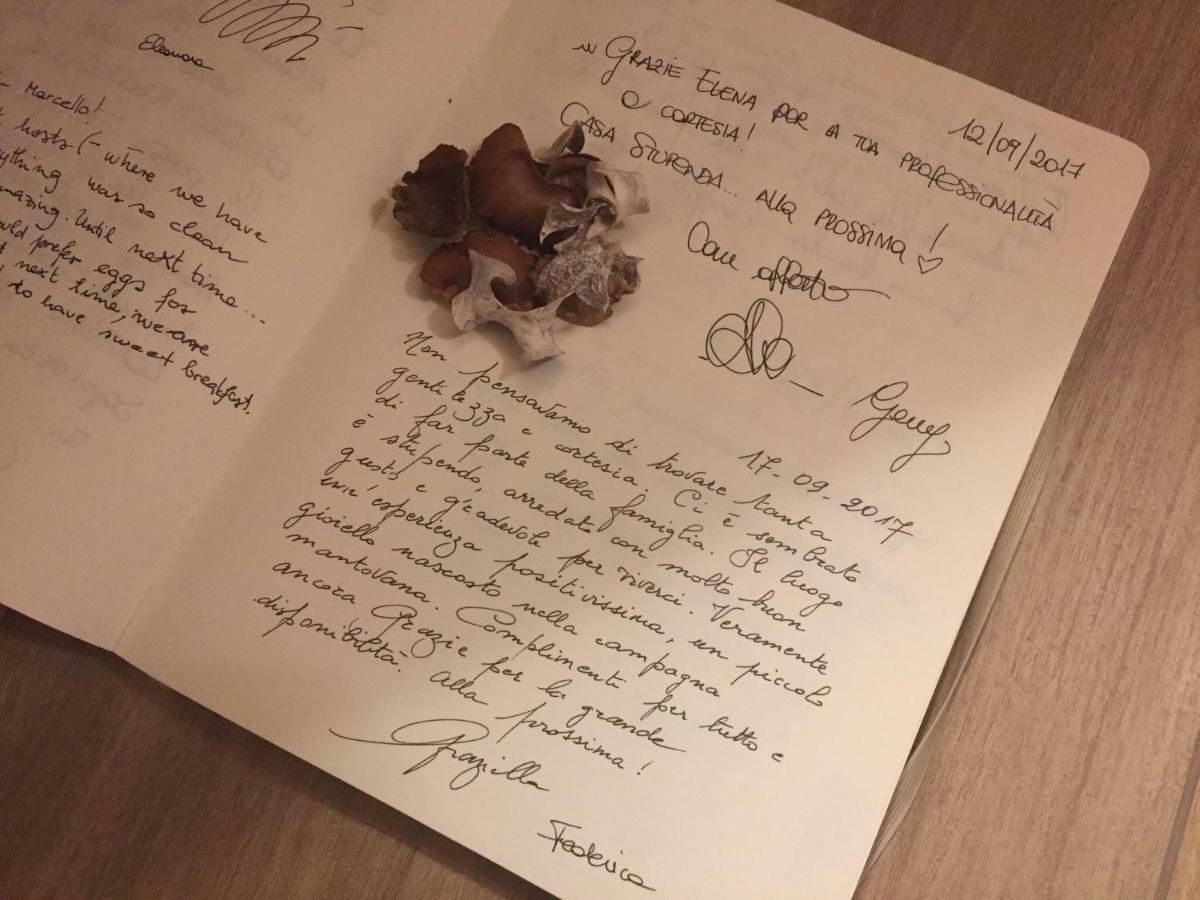 Eleonora
Marcello!
hosts (- where we have
everything was so clean
amazing. Until next time...
would prefer eggs for
next time, we are
to have sweet breakfast!
12/09/2017
... GRAZIE ELENA PER LA TUA PROFESSIONALITÀ
E CORTESIA!
CASA STUPENDA... ALLA PROSSIMA! ♡
Con affetto
17-09-2017
Non pensavamo di trovare tanta
gentilezza e cortesia. Ci è sembrato
di far parte della famiglia. Il luogo
è stupendo, arredato con molto buon
gusto e gradevole per viverci. Veramente
un'esperienza positivissima, un piccolo
gioiello nascosto nella campagna
mantovana. Complimenti per tutto e
ancora Grazie per la grande
disponibilità. Alla prossima!
Graziella
Federica